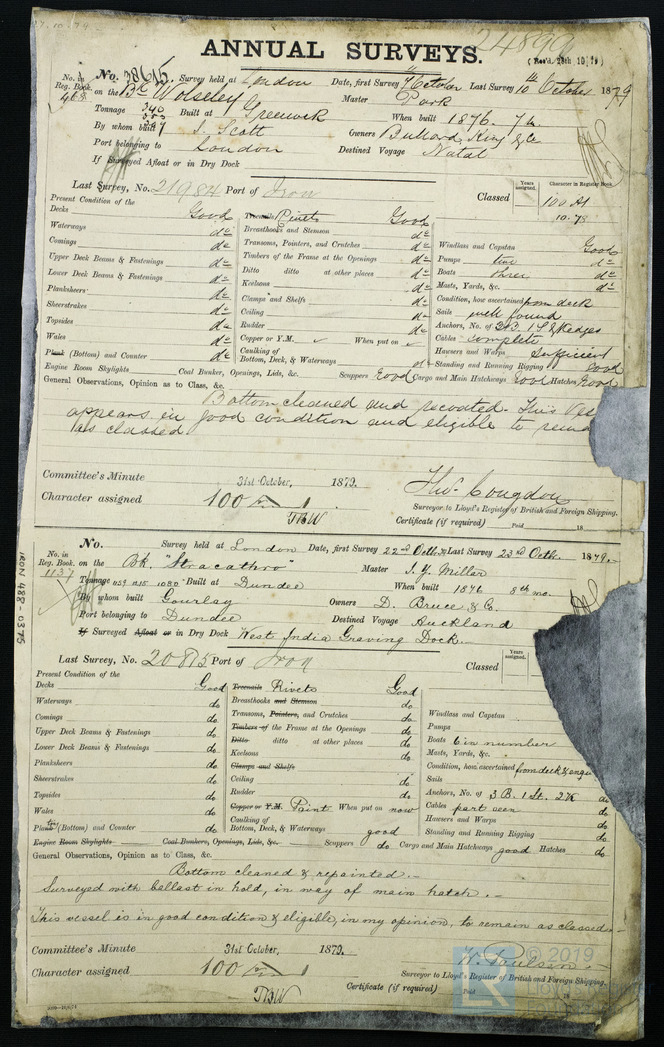 27.10.79
24899
ANNUAL SURVEYS.
(Rec'd. 28th 10/79)
No. in Reg. Book. 468 No. 38615. Survey held at London Date, first Survey 7th October Last Survey 10th October 1879
on the Bk Wolseley Master Park
Tonnage 340 Built at Greenwich When built 1876. 7 m
By whom built J. Scott Owners Bullard, King & Co
Port belonging to London Destined Voyage Natal
If Surveyed Afloat or in Dry Dock
Last Survey, No. 21984 Port of Iron Classed Years assigned. Character in Register Book 100 A1
10.78
Present Condition of the
Decks Good Treenails Rivets Good
Waterways do Breasthooks and Stemson do
Comings do Transoms, Pointers, and Crutches do Windlass and Capstan Good
Upper Deck Beams & Fastenings do Timbers of the Frame at the Openings do Pumps two do
Lower Deck Beams & Fastenings do Ditto ditto at other places do Boats three do
Planksheers do Keelsons do Masts, Yards, &c. do
Sheerstrakes do Clamps and Shelfs do Condition, how ascertained from deck
Topsides do Ceiling do Sails well found
Wales do Rudder do Anchors, No. of 3 B. 1 S. & Kedges
Plank (Bottom) and Counter do Copper or Y.M. When put on Cables complete
Caulking of Bottom, Deck, & Waterways do Hawsers and Warps Sufficient
Standing and Running Rigging Good
Engine Room Skylights Coal Bunker, Openings, Lids, &c. Scuppers Good Cargo and Main Hatchways Good Hatches Good
General Observations, Opinion as to Class, &c.
Bottom cleaned and recoated. This Ves
appears in good condition and eligible to rema
as classed
Committee's Minute 31st October, 1879.
Character assigned 100 A 1
TBW
Thos. Congdon
Surveyor to Lloyd's Register of British and Foreign Shipping.
Certificate (if required) Paid 18
No. Survey held at London Date, first Survey 22nd Octr. Last Survey 23rd Octr. 1879.
No. in Reg. Book. 1137 on the Bk. "Stracathro" Master J. Y. Millar
Tonnage 1159 1215 1080 Built at Dundee When built 1876 8th mo.
By whom built Gourlay Owners D. Bruce & Co.
Port belonging to Dundee Destined Voyage Auckland
If Surveyed Afloat or in Dry Dock West India Graving Dock.
Last Survey, No. 20815 Port of Iron Classed Years assigned.
Present Condition of the
Decks Good Treenails Rivets Good
Waterways do Breasthooks and Stemson do
Comings do Transoms, Pointers, and Crutches do Windlass and Capstan
Upper Deck Beams & Fastenings do Timbers of the Frame at the Openings do Pumps
Lower Deck Beams & Fastenings do Ditto ditto at other places do Boats 6 in number
Planksheers do Keelsons do Masts, Yards, &c.
Sheerstrakes do Clamps and Shelfs Condition, how ascertained from deck & enqu
Topsides do Ceiling do Sails
Wales do Rudder do Anchors, No. of 3 B. 1 St. 2 K do
Plank (Bottom) and Counter do Copper or Y.M. Paint When put on now Cables part seen do
Caulking of Bottom, Deck, & Waterways good Hawsers and Warps do
Standing and Running Rigging do
Engine Room Skylights Coal Bunkers, Openings, Lids, &c. Scuppers do Cargo and Main Hatchways good Hatches do
General Observations, Opinion as to Class, &c.
Bottom cleaned & repainted.
Surveyed with ballast in hold, in way of main hatch.
This vessel is in good condition & eligible, in my opinion, to remain as classed.
Committee's Minute 31st October, 1879.
Character assigned 100 A 1
TBW
W. Paulsin
Surveyor to Lloyd's Register of British and Foreign Shipping.
Certificate (if required) Paid 18
IRON 488-0375
© 2019